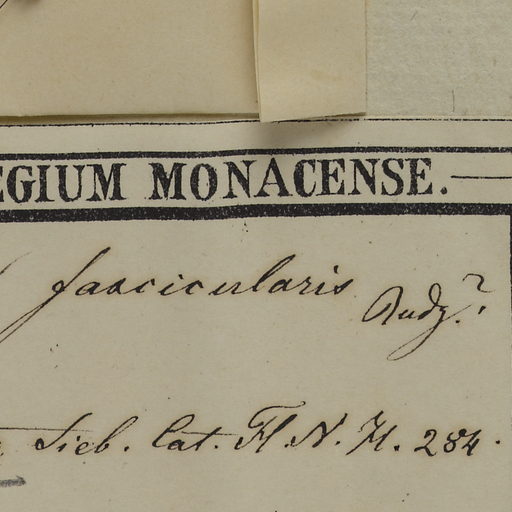 EGIUM MONACENSE.
fascicularis Rudg.?
Sieb. Cat. Fl. N. H. 284.